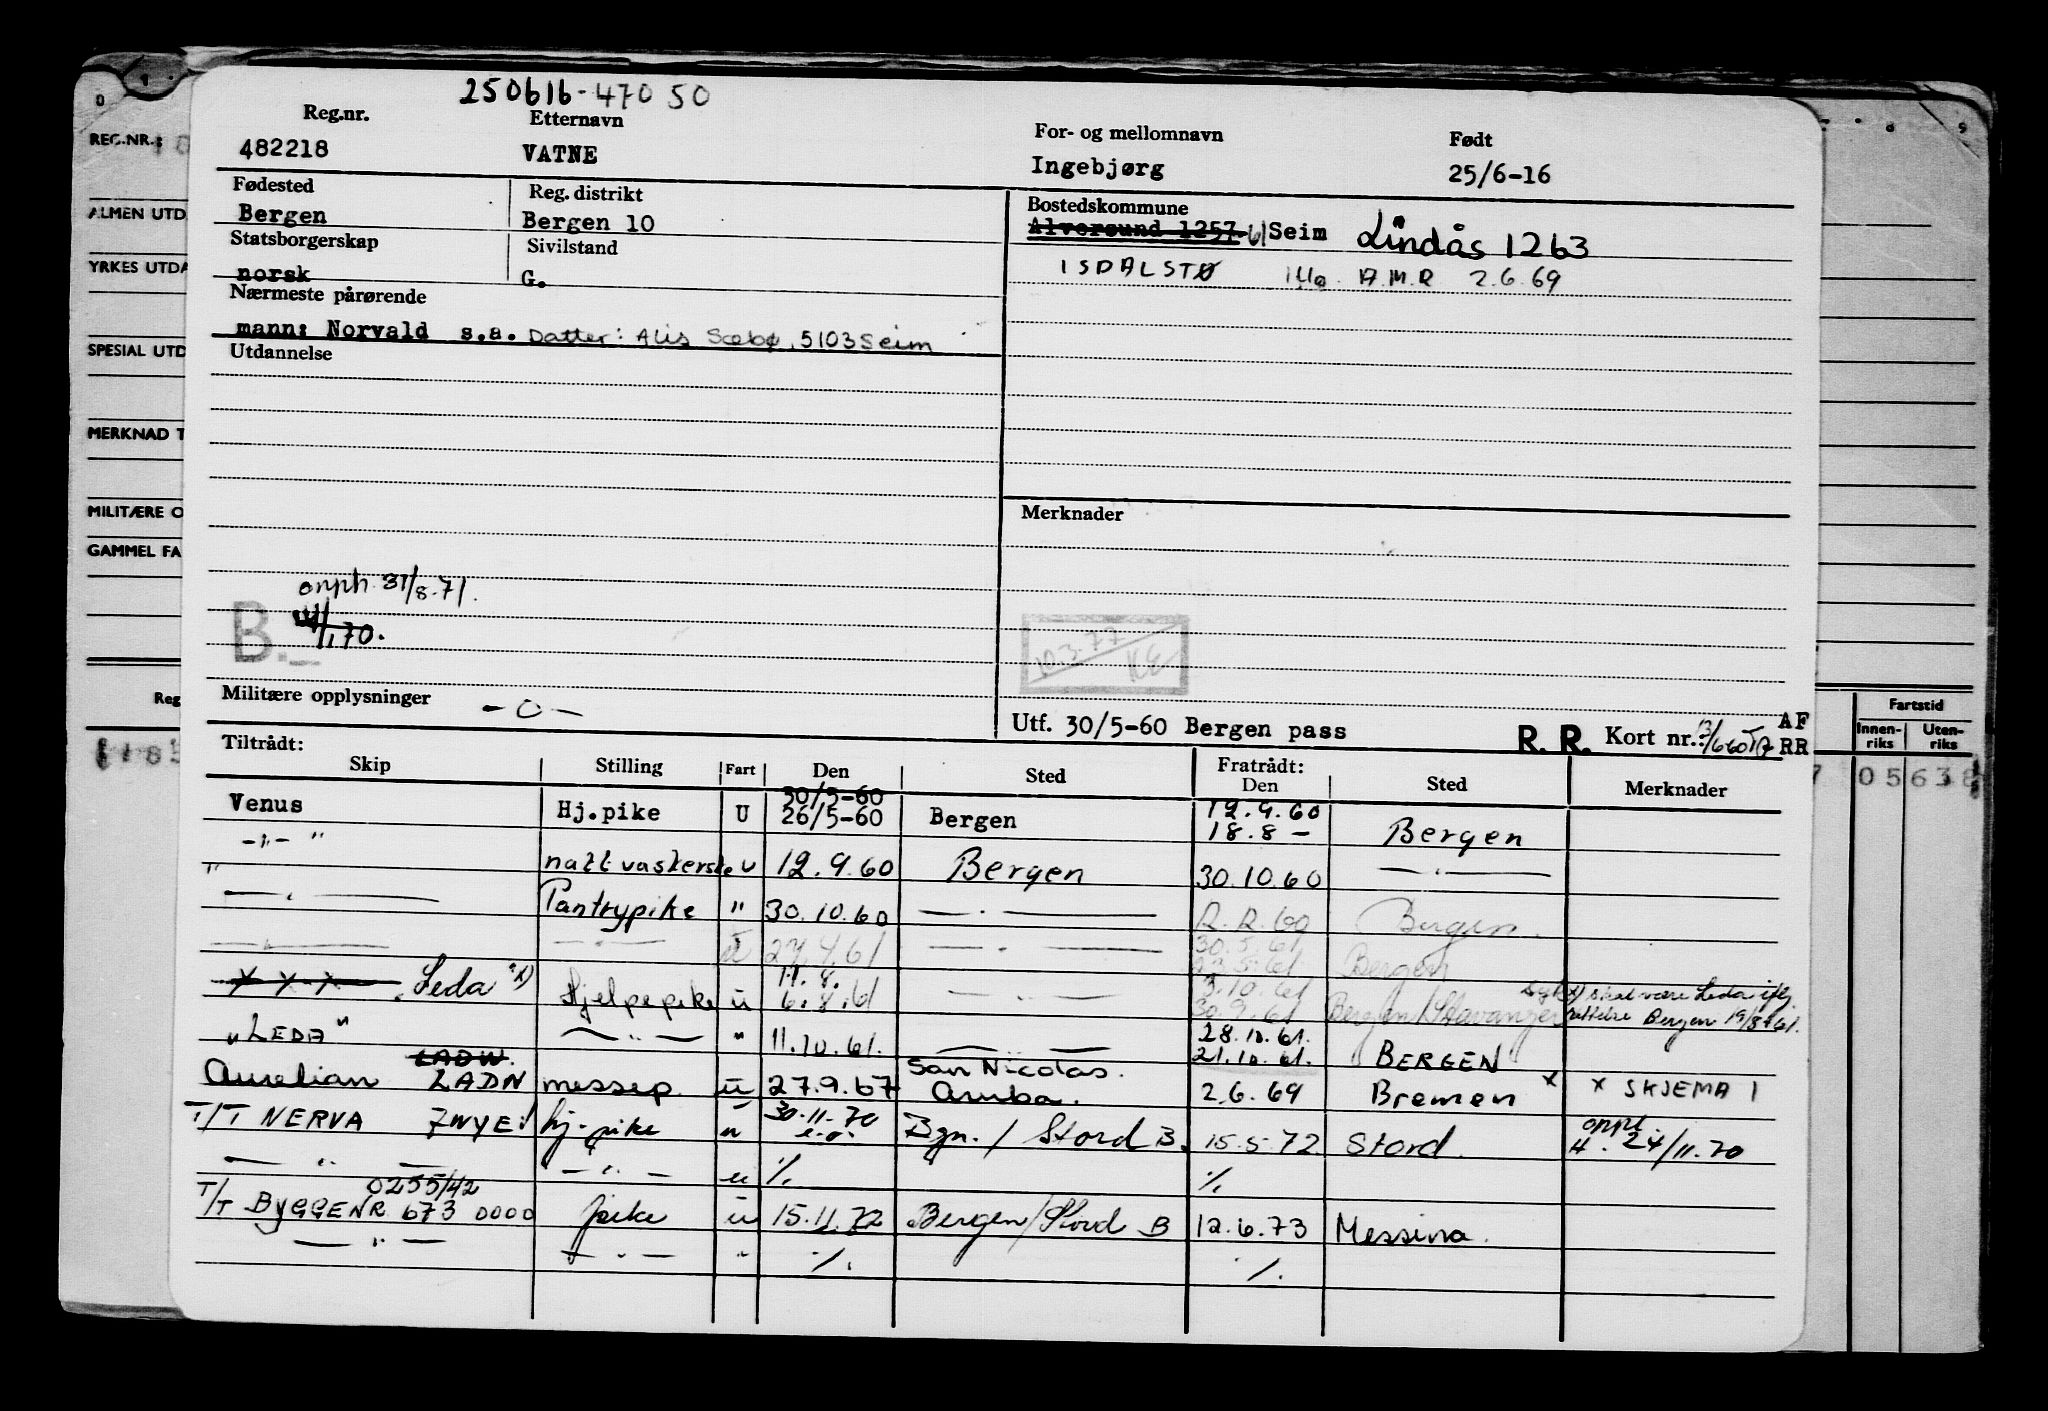 250616-47050
Reg.nr. Etternavn For- og mellomnavn Født
482218 VATNE Ingebjørg 25/6-16
Fødested Reg. distrikt Bostedskommune
Bergen Bergen 10 Alversund 1257-61 Seim Lindås 1263
Statsborgerskap Sivilstand
norsk G. ISDALSTØ A.M.R 2.6.69
Nærmeste pårørende
mann: Norvald s.a. Datter: Alis Sæbø, 5103 Seim
Utdannelse
Merknader
onph. 31/8.71.
B.
10.3.77 KE
Militære opplysninger -0-
Utf. 30/5-60 Bergen pass R. R. Kort nr.: AF RR
Tiltrådt: Fratrådt:
Skip Stilling Fart Den Sted Den Sted Merknader
Venus Hj.pike U 30/5-60 26/5-60 Bergen 12.9.60 18.8 - Bergen
-"- " nattvaskerske U 12.9.60 Bergen 30.10.60 -"-
-"- Pantrypike " 30.10.60 -"- 2.2.60 Bergen.
-"- -"- U 27.4.61 -"- 30.5.61 Bergen
Leda x) Hjelpepike U 11.8. 6.8.61 -"- 3.10.61 30.9.61 Bergen/Stavanger x) skal være Leda iflg. rettelse Bergen 19/8-61.
"LEDA" -"- " 11.10.61. -"- 28.10.61. 21.10.61. BERGEN
Aurelian LADW. LADN messep. U 27.9.67 San Nicolas. Aruba. 2.6.69 Bremen x x SKJEMA 1
T/T NERVA hj.pike U 30.11.70 Bgn. / Stord B. 15.5.72 Stord. 24/11.70
-"- -"- U %. %.
0255/42
T/T BYGGENR. 673 0000 pike U 15.11.72 Bergen/Stord B 12.6.73 Messina.
-"- -"- " %. %.
REG.NR.:
ALMEN UTD
YRKES UTDA
SPESIAL UTD
MERKNAD T
MILITÆRE O
GAMMEL FA
Reg
Fartstid
Innen-riks Uten-riks
05638